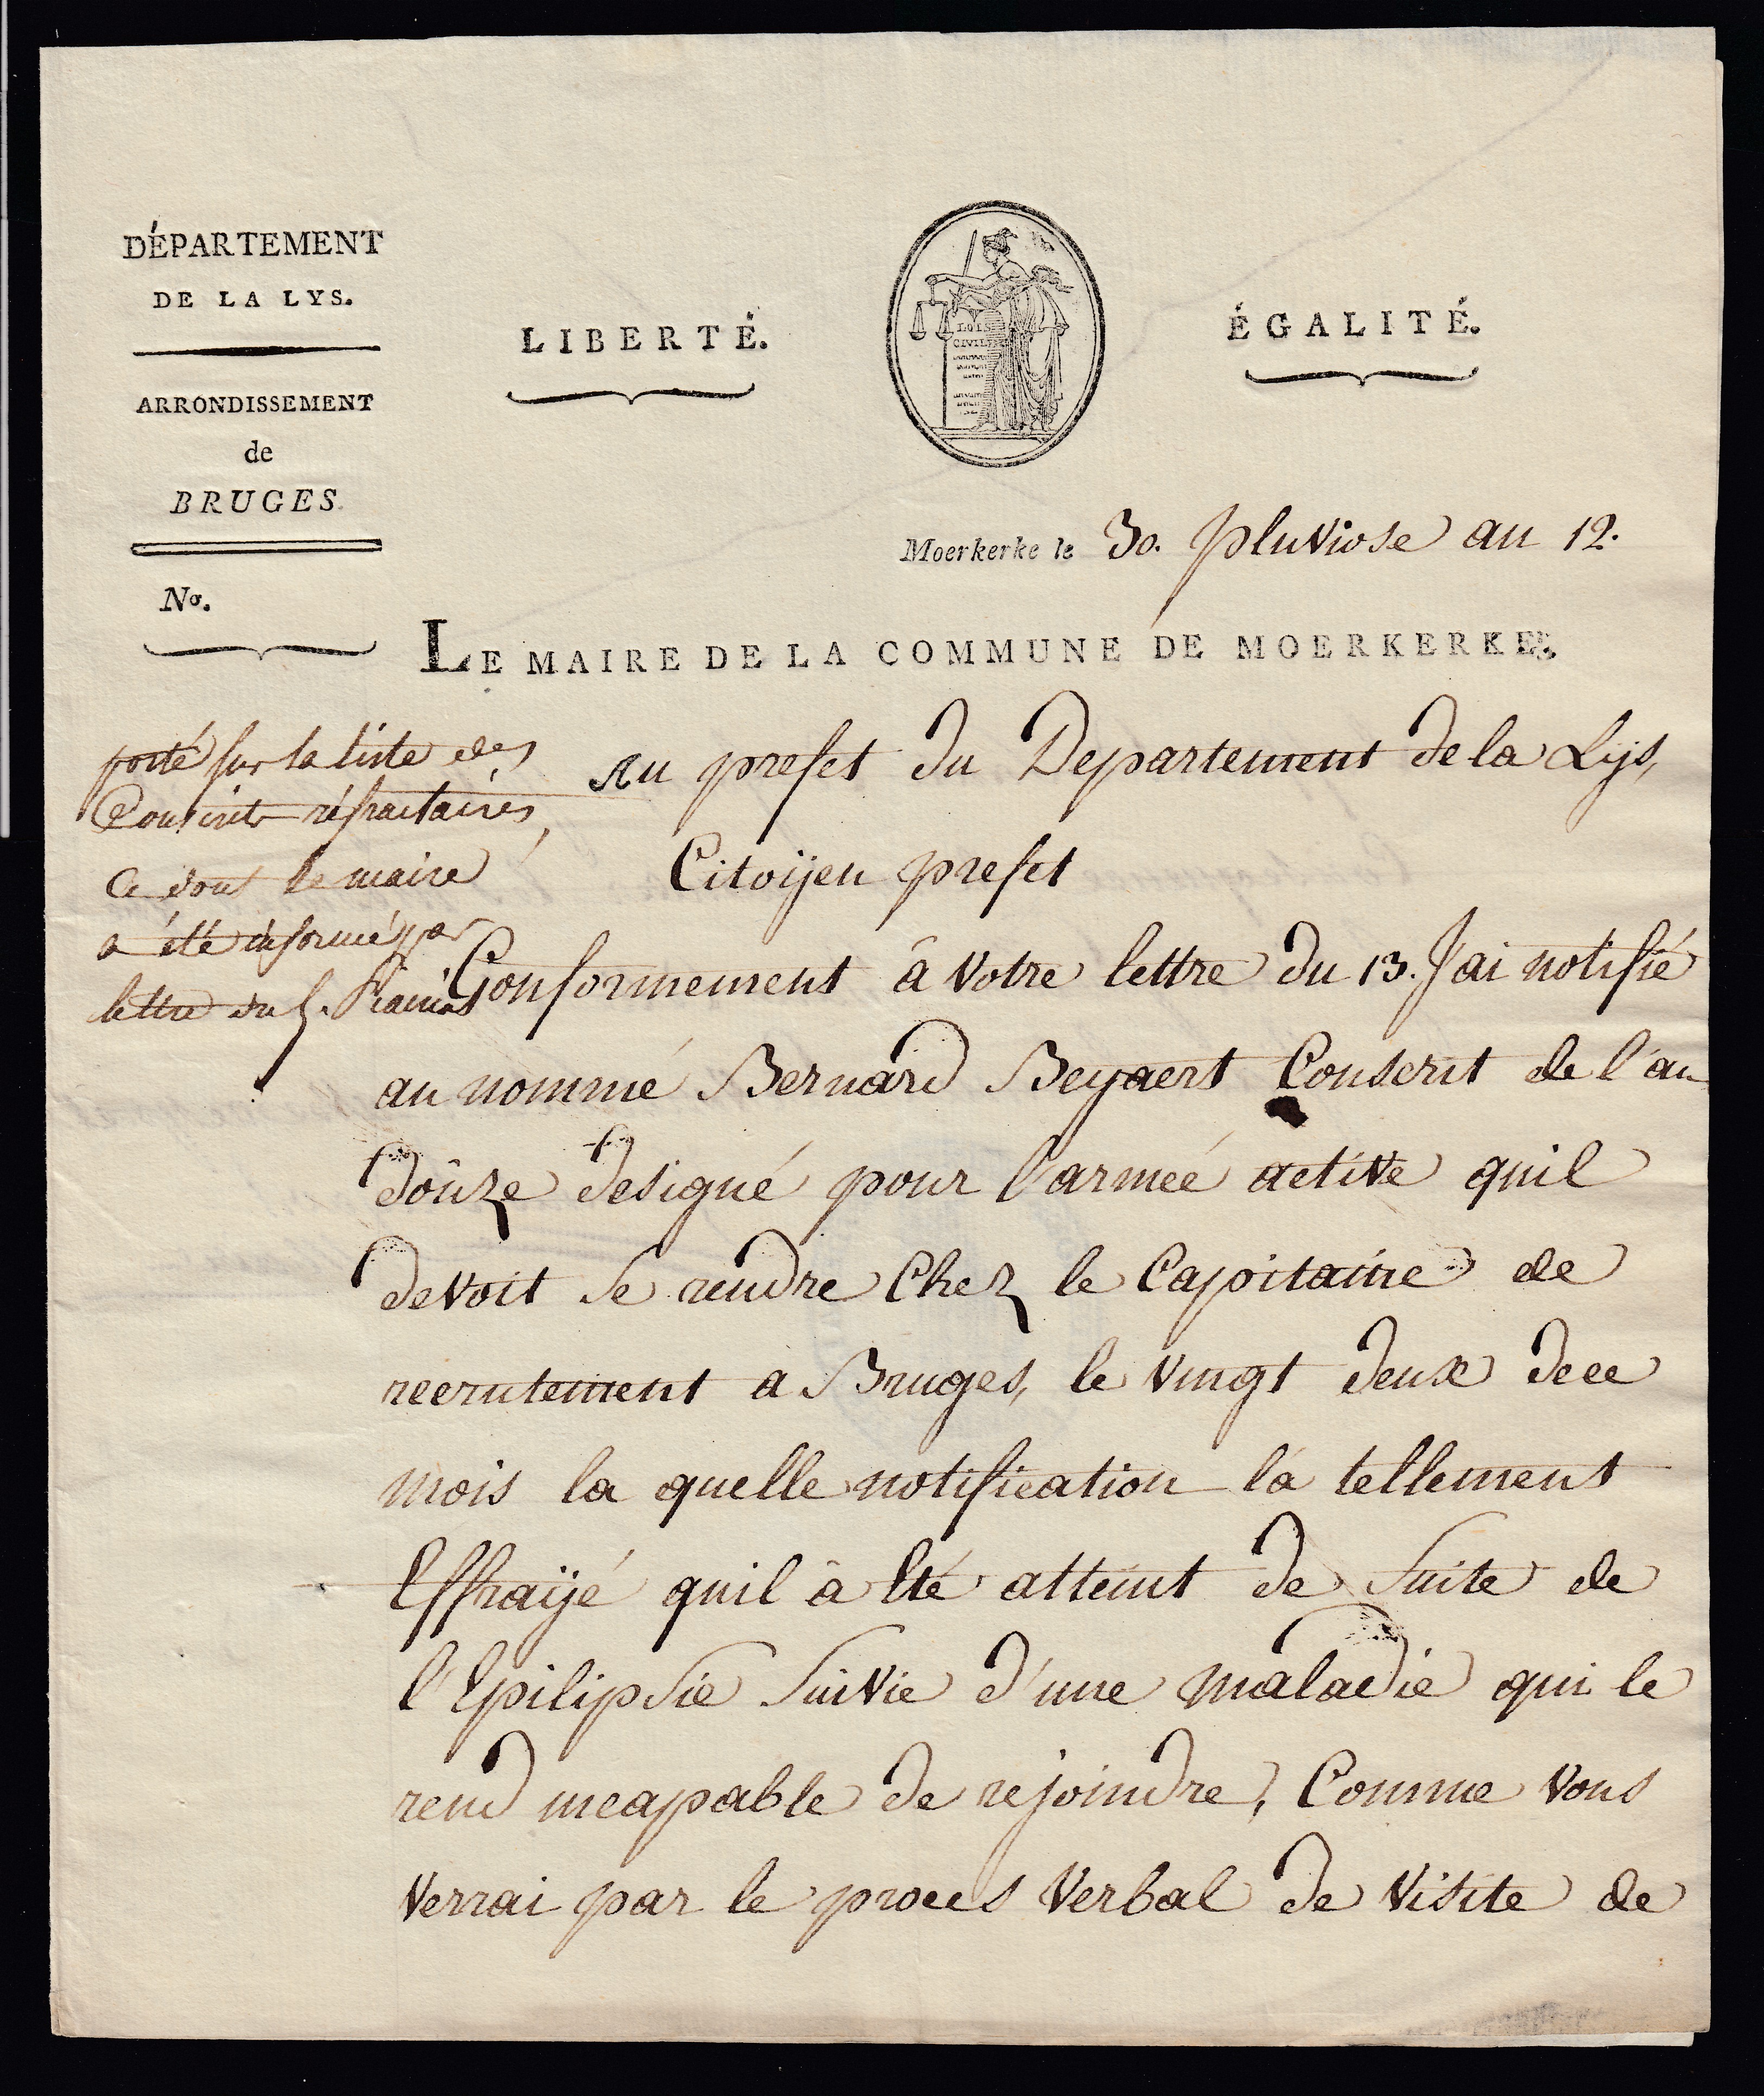 DÉPARTEMENT
DE LA LYS.
ARRONDISSEMENT
de
BRUGES.
Nº.
LIBERTÉ.
LOIS
CIVILES
ÉGALITÉ.
Moerkerke le 30. pluViose an 12.
LE MAIRE DE LA COMMUNE DE MOERKERKE.
porté sur la liste des
Conscrits réfractaires,
Ce dont le maire
a été informé par
lettre du 5.
Au prefet du Departement de la Lys,
Citoijen prefet
Conformement â Votre lettre du 13. J'ai notifié
au nommé Bernard Beyaert Conscrit de l'an
doûze designé pour l'armeé active quil
deVoit se rendre Chez le Capitaine de
recrutement a Bruges, le Vingt deux dece
mois la quelle notification la tellement
Effraijé quil â Eté atteint de Suite de
l'Epilipsie SuiVie d'une maladie qui le
rend incapable de rejoindre, Comme Vous
Verrai par le proces Verbal de Visite de